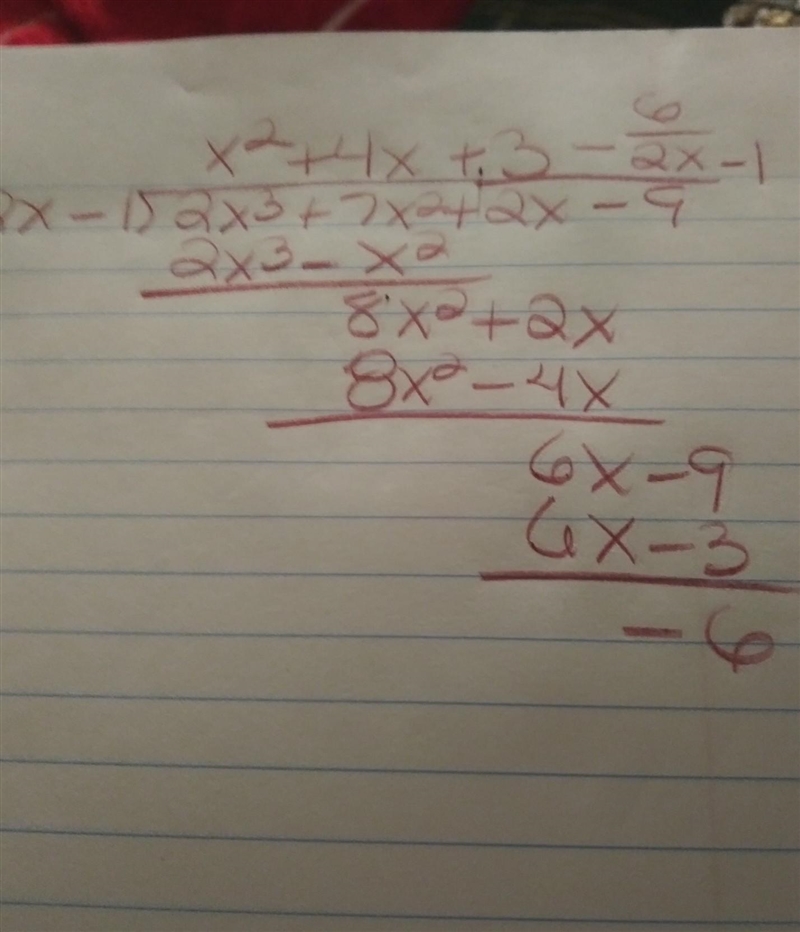 x² + 4x + 3 - 6/2x - 1
2x - 1) 2x³ + 7x² + 2x - 9
2x³ - x²
8x² + 2x
8x² - 4x
6x - 9
6x - 3
- 6